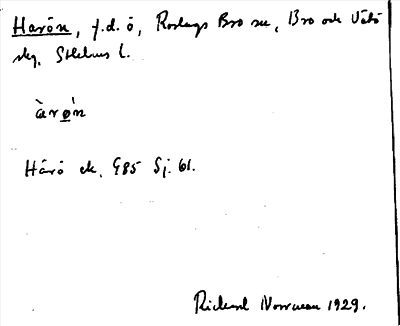 Harön, f.d. ö, Roslags Bro sn, Bro och Vätö
skg, Sthlms l.
àro̱ń
Härö ek. G85 Sj. 61.
Rickard Norrman 1929.